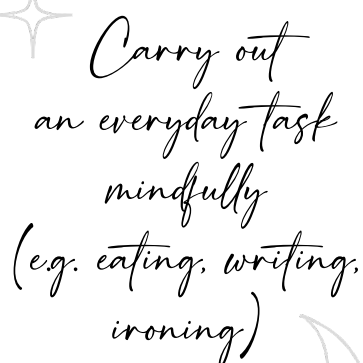 Carry out
an everyday task
mindfully
(e.g. eating, writing,
ironing)